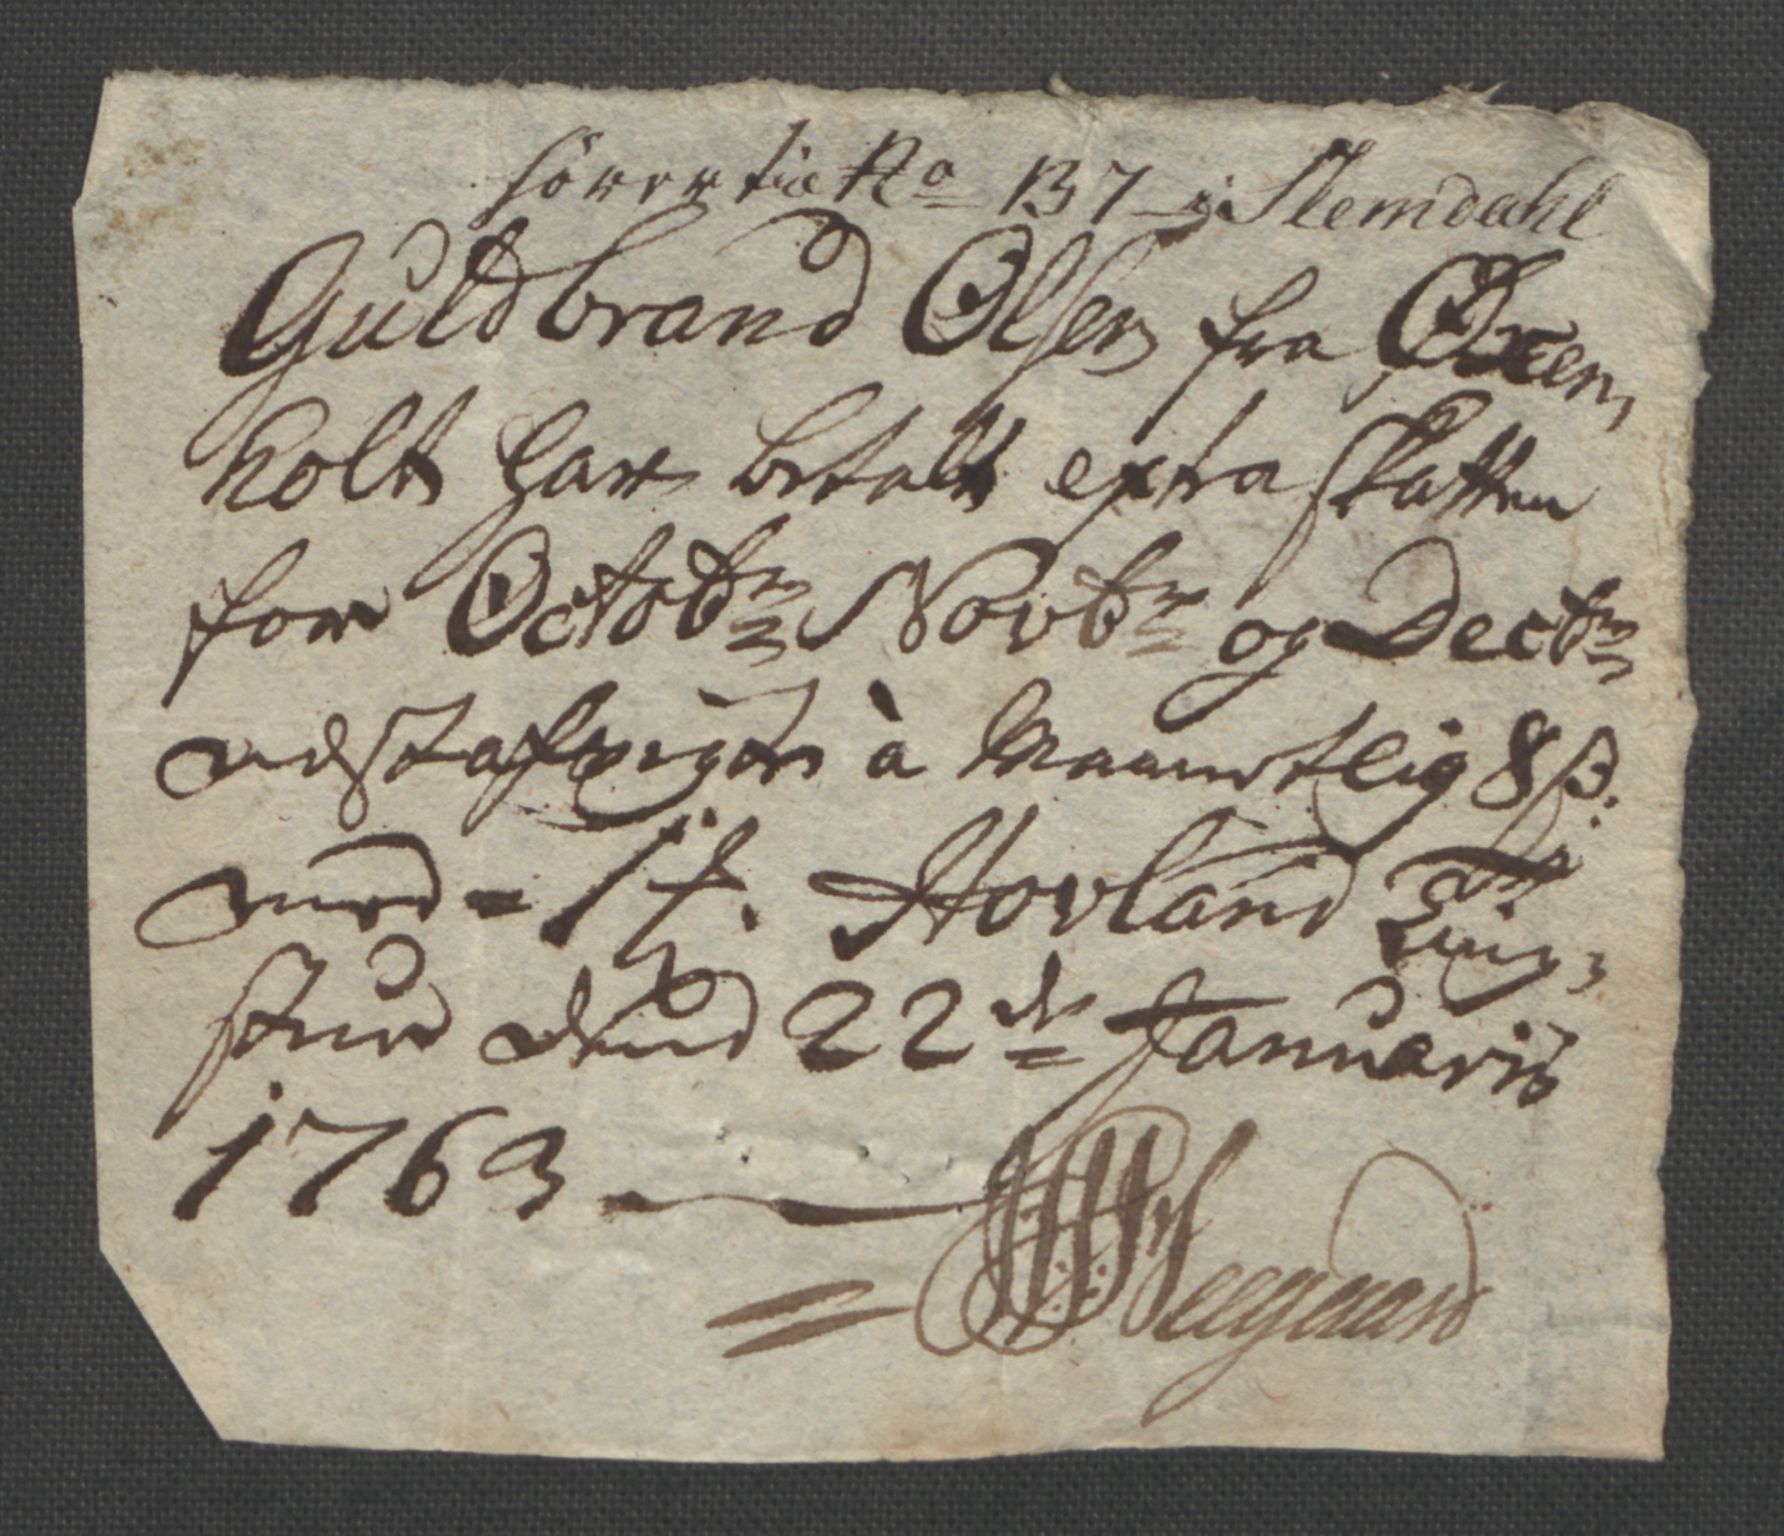 hörer til No 137 i Slemdahl
Guldbrand Olsen fra Oxen,
holt har betalt extra skatten
for Octobr Novbr og Decbr
nästafvigte à Maanetlig 8 ß.
med - 1 f. Hovland Ting,
stue dend 22de Januarij
1763
Weegaard